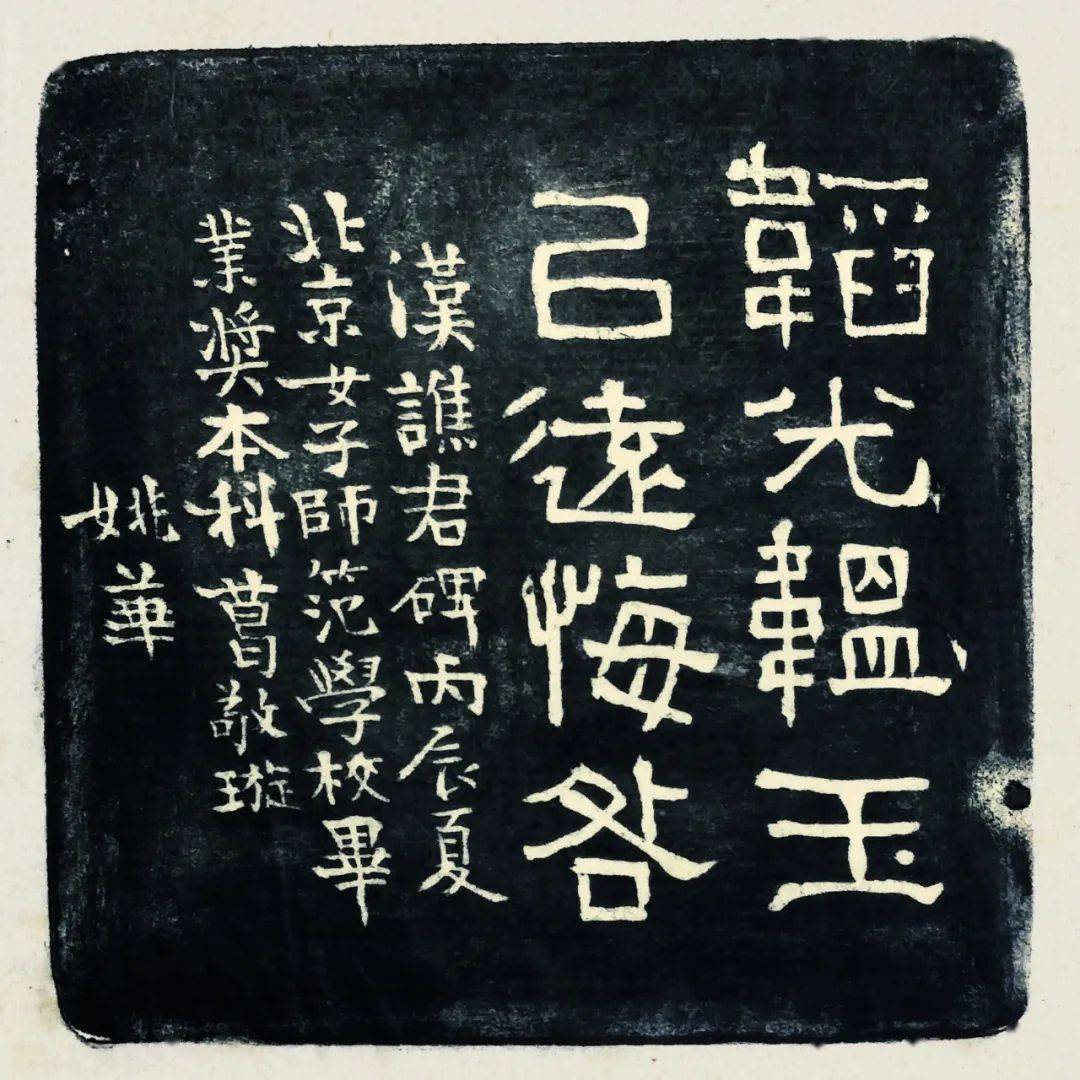 韜光韞玉
㠯遠悔咎
漢譙君碑丙辰夏
北京女子師笵學校畢
業奬本科敬璇
姚華